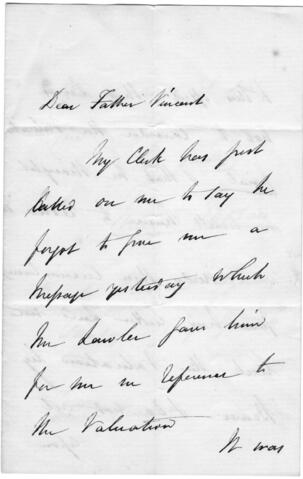 Dear Father Vincent
My Clerk has just
called on me to say he
forgot to give me a
message yesterday which
Mr Lawler gave him
for me in reference to
the Valuation
It was